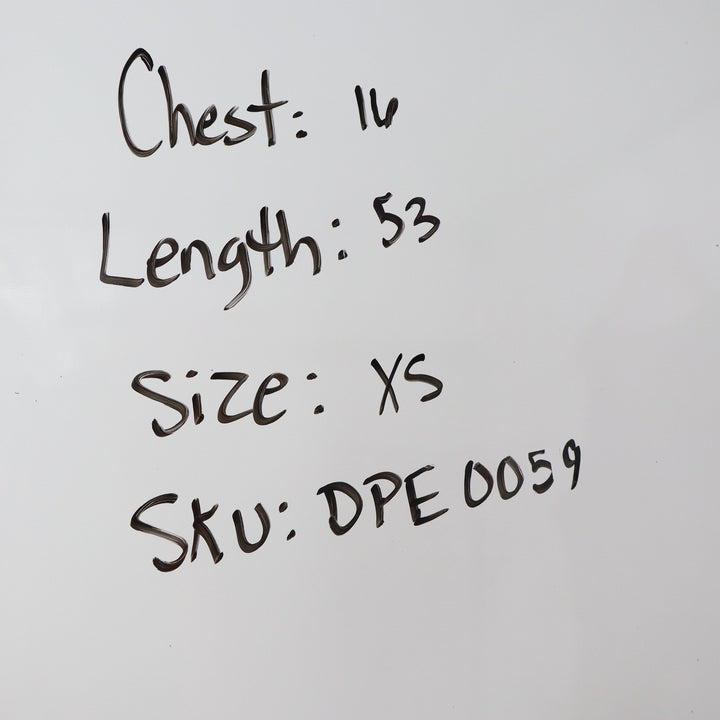 Chest: 16
Length: 53
Size: XS
SKU: DPE 0059